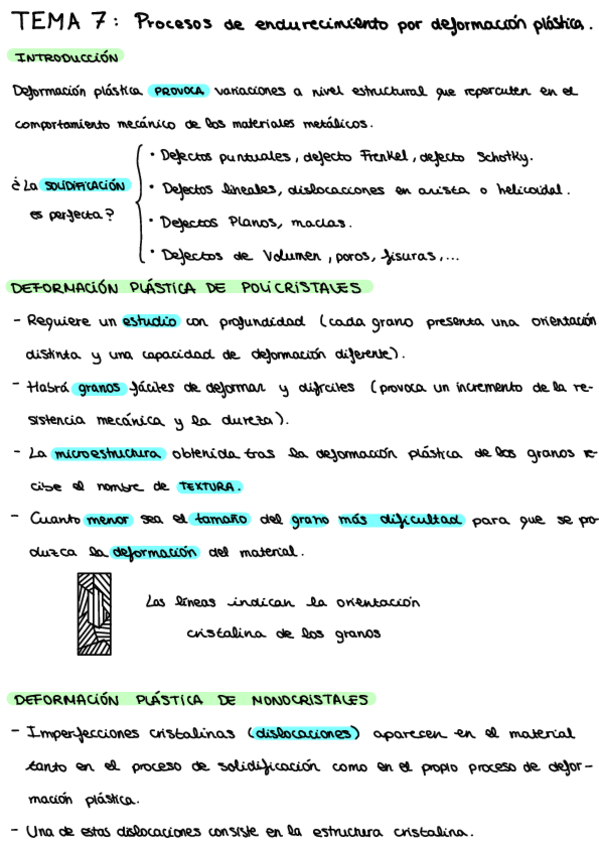 TEMA 7: Procesos de endurecimiento por deformación plástica.
INTRODUCCIÓN
Deformación plástica PROVOCA variaciones a nivel estructural que repercuten en el
comportamiento mecánico de los materiales metálicos.
¿La SOLIDIFICACIÓN
es perfecta?
· Defectos puntuales, defecto Frenkel, defecto Schotky.
· Defectos lineales, dislocaciones en arista o helicoidal.
· Defectos Planos, maclas.
· Defectos de Volumen, poros, fisuras,...
DEFORMACIÓN PLÁSTICA DE POLICRISTALES
- Requiere un estudio con profundidad (cada grano presenta una orientación
distinta y una capacidad de deformación diferente).
- Habrá granos fáciles de deformar y difíciles (provoca un incremento de la re-
sistencia mecánica y la dureza).
- La microestructura obtenida tras la deformación plástica de los granos re-
cibe el nombre de TEXTURA.
- Cuanto menor sea el tamaño del grano más dificultad para que se po-
duzca la deformación del material.
Las líneas indican la orientación
cristalina de los granos
DEFORMACIÓN PLÁSTICA DE MONOCRISTALES
- Imperfecciones cristalinas (dislocaciones) aparecen en el material
tanto en el proceso de solidificación como en el propio proceso de defor-
mación plástica.
- Una de estas dislocaciones consiste en la estructura cristalina.